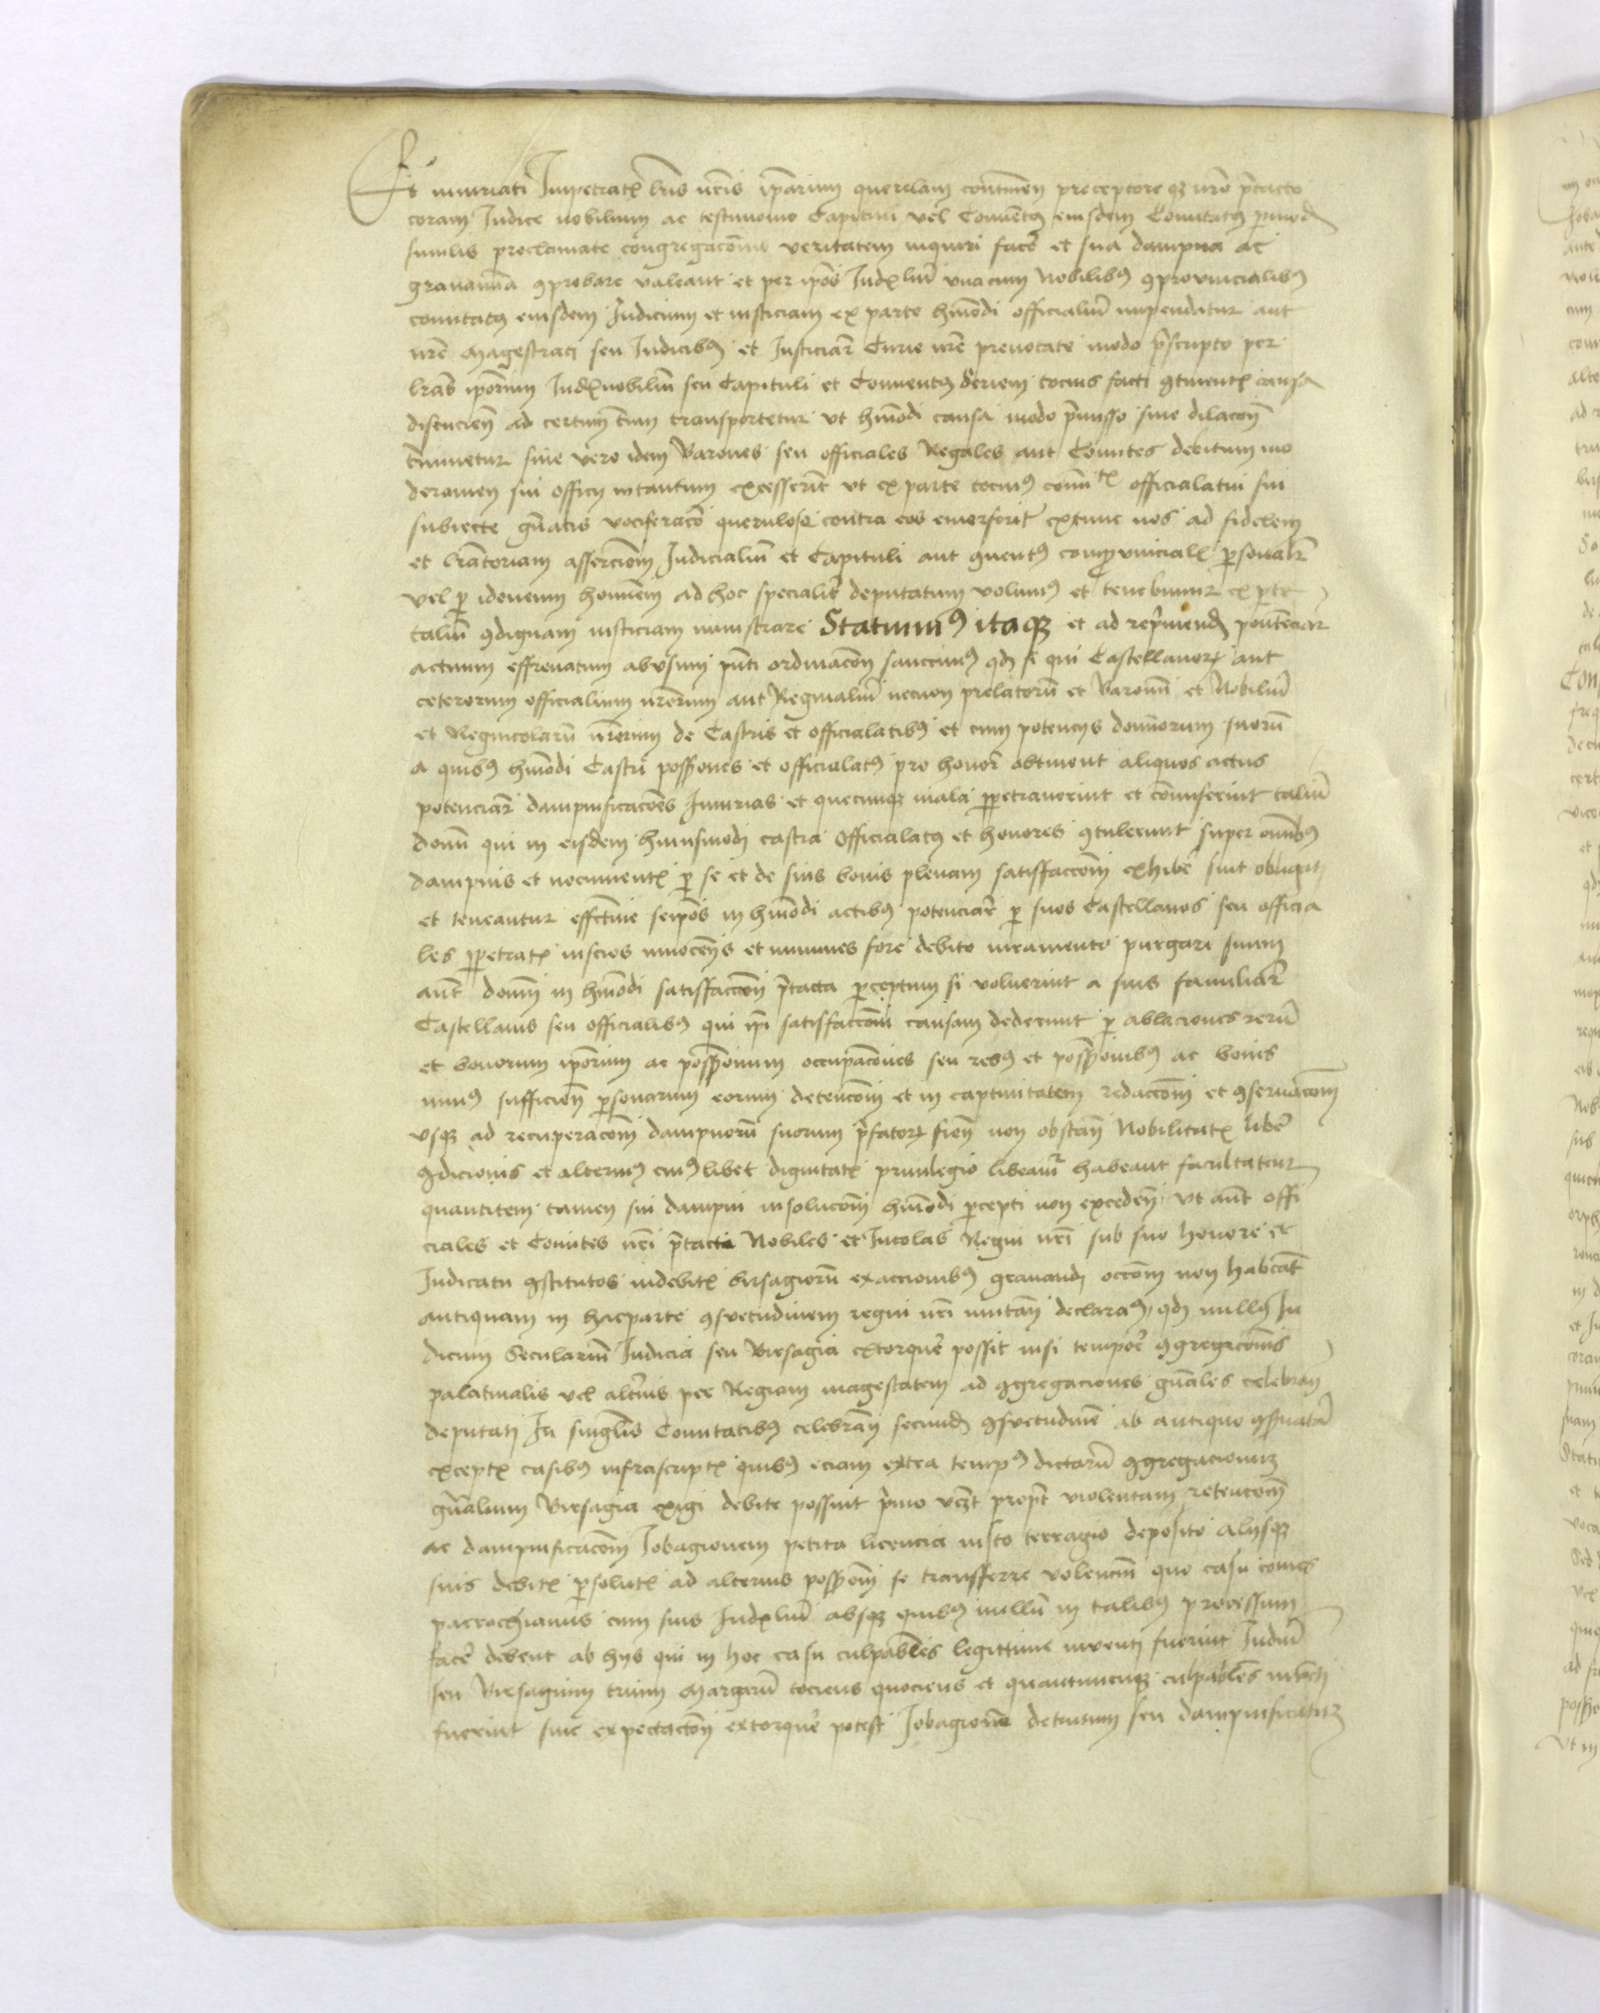 Et iniuriati Impetratis lris nris ipsarum querelam continen preceptore qz nro ptacto
coram Iudice nobilium ac testimonio Capituli vel Conuentus eiusdem Comitatus pmod
similis proclamate congregacionis veritatem inquiri facere et sua dampna ac
grauamina comprobare valeant et per ipos Iudlium vnacum Nobilibus comprouincialibus
comitatus eiusdem Iudicium et iusticiam ex parte hmodi officialium impendatur aut
nre Magestrati seu Iudicibus et Iusticiar Curie nre preuocate modo pscripto per
lras iporum Iudnobilium seu Capituli et Conuentus seriem tocius facti continent causa
discucien ad certum tminum transportetur vt hmodi causa modo pmisso sine dilacon
tminetur sine vero idem Barones seu officiales Regales aut Comites debitum mo
deramen sui officy intantum excesserit vt ex parte tocius comitatus officialatui sui
subiecte gnalis vociferaco querulose contra eos emerserit extunc nos ad fidelem
et lratoriam assercionem Iudicialium et Capituli aut conuentus comprouincial personalr
vel p idoneum hominem ad hoc specialiter deputatum volumus et tenebimur ex pte
talium condignam iusticiam ministrare Statuimus itaqz et ad reprimend potenciar
actuum effrenatum abusum pnti ordinacone sanccimus qd si qui Castellanor aut
ceterorum officialium nrorum aut Reginalium necnon prelatorum et Baronum et Nobilium
et Regnicolarum nrorum de Castris et officialatibus et cum potencys dominorum suorum
a quibus hmodi Castra possones et officialatus pro honor obtinent aliquos actus
potenciar dampnificacones Iniurias et quecunqz mala perpetrauerint et comiserint talium
domini qui in eisdem huiusmodi castra officialatus et honores contulerunt super omnibus
dampnis et nocument p se et de suis bonis plenam satisfaccom exhibe sint obligati
et teneantur effectiue seipos in hmodi actibus potenciar p suos Castellanos seu officia
les perpetrat inscios innocens et inmunes fore debito iuramento purgari simm
aut domini in hmodi satisfaccom ptacta perceptum si voluerint a suis familiar
Castellanis seu officialibus qui ipi satisfaccom causam dederunt p ablaciones rerum
et bonorum iporum ac possonum occupacones seu rebus et possonibus ac bonis
minus sufficien personarum eorum detencom et in captiuitatem redaccom et conseruacom
vsqz ad recuperacom dampnorum suorum pfator fien non obstan Nobilitat liber
condicionis et alterius cuiuslibet dignitat priuilegio liberam habeant facultatem
quantitem tamen sui dampni in solucom hmodi pcepti non exceden vt aut offi
ciales et Comites nri ptacta Nobiles et Incolas Regni nri sub suo honore et
Iudicatu constitutos indebit birsagiorum exaccionibus grauand occom non habeat
antiquam in hac parte consuetudinem regni nri imitan declaramus qd nullus Iu
dicum Secularium Iudicia seu Birsagia extorquere possit nisi tempore congregaconis
palatinalis vel alterius per Regiam magestatem ad congregaciones gnales celebran
deputati In singulis Comitatibus celebran secund consuetudinem ab antiquo conseruatam
except casibus infrascript quibus eciam extra tempus dictarum congregacionum
gnalium Birsagia exigi debite possint primo vczt propter violentam retencoem
ac dampnificacom Iobagionem petita licencia iusto terragio deposito alysqz
suis debit persolut ad alterius possom se transferre volencium quo casu comes
parrochianus cum suis Iudlium absqz quibus nullum in talibus processum
facere debent ab hys qui in hoc casu culpabiles legittime inuenti fuerint Iudicium
seu Birsagium trium Marcarum tociens quociens et quantumcunqz culpabiles inuenti
fuerint sine expectacom extorquere potest Iobagione detentum seu dampnificatum